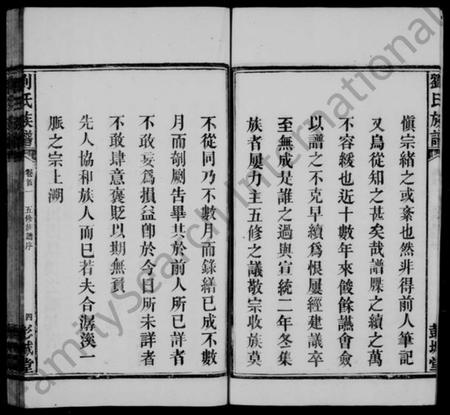 劉氏族譜
彭城堂
愼宗緒之或紊也然非得前人筆記
又烏從知之甚矣哉譜牒之續之萬
不容緩也近十數年來餕餘讌會僉
以譜之不克早續爲恨屢經建議卒
至無成是誰之過與宣統二年冬集
族者屢力主五修之議敬宗收族莫
不從同乃不數月而錄繕已成不數
月而剞劂告畢其於前人所已詳者
不敢妄爲損益卽於今日所未詳者
不敢肆意褒貶以期無負
先人協和族人而已若夫合潺溪一
脈之宗上溯
劉氏族譜
卷首
五修族譜序
四
彭城堂
FamilySearch International